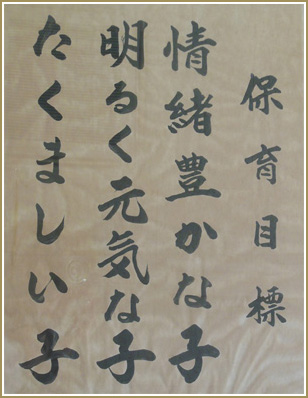 保育目標
情緒豊かな子
明るく元気な子
たくましい子